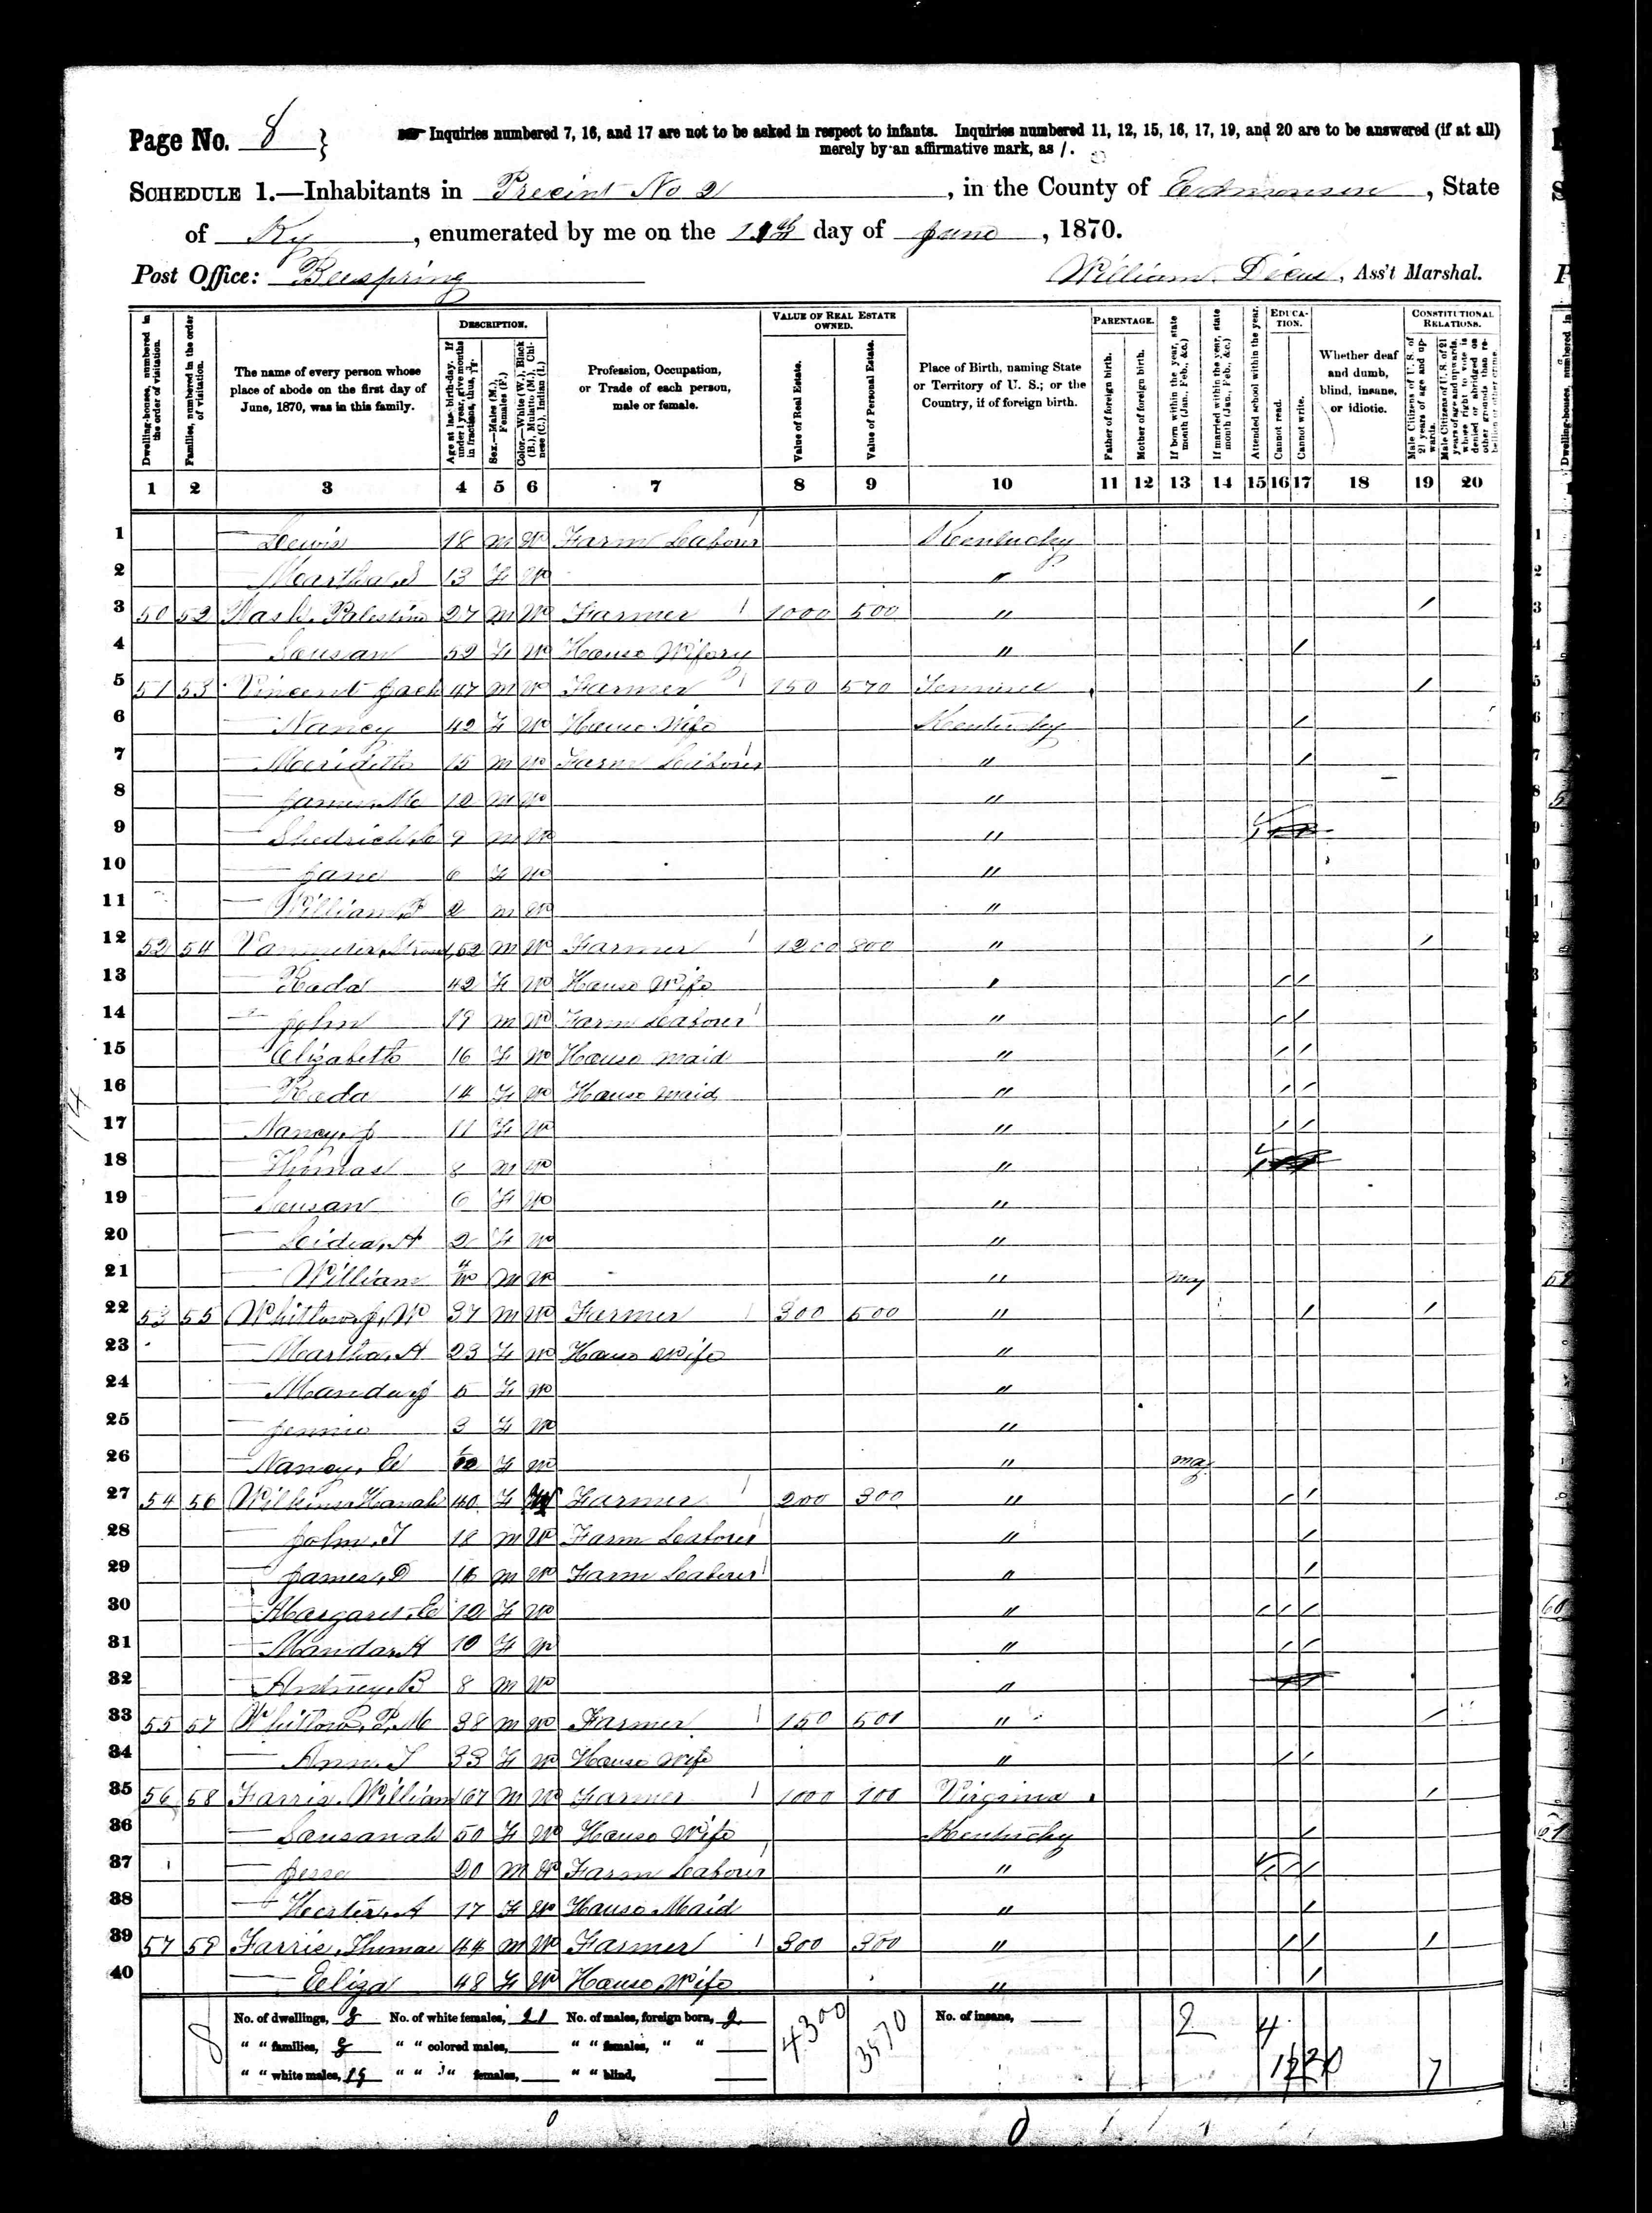 Page No. 8 } Inquiries numbered 7, 16, and 17 are not to be asked in respect to infants. Inquiries numbered 11, 12, 15, 16, 17, 19, and 20 are to be answered (if at all)
merely by an affirmative mark, as /.
SCHEDULE 1.—Inhabitants in Precint No 2, in the County of Edmonson, State
of Ky, enumerated by me on the 11th day of June, 1870.
Post Office: Beespring William Dicus, Ass't Marshal.
DESCRIPTION. VALUE OF REAL ESTATE OWNED. PARENTAGE. EDUCATION. CONSTITUTIONAL RELATIONS.
Dwelling-houses, numbered in the order of visitation.
Families, numbered in the order of visitation.
The name of every person whose place of abode on the first day of June, 1870, was in this family.
Age at last birth-day. If under 1 year, give months in fractions, thus,
Sex.—Males (M.), Females (F.)
Color.—White (W.), Black (B.), Mulatto (M.), Chinese (C.), Indian (I.)
Profession, Occupation, or Trade of each person, male or female.
Value of Real Estate.
Value of Personal Estate.
Place of Birth, naming State or Territory of U. S.; or the Country, if of foreign birth.
Father of foreign birth.
Mother of foreign birth.
If born within the year, state month (Jan., Feb., &c.)
If married within the year, state month (Jan., Feb., &c.)
Attended school within the year.
Cannot read.
Cannot write.
Whether deaf and dumb, blind, insane, or idiotic.
Male Citizens of U. S. of 21 years of age and upwards.
Male Citizens of U. S. of 21 years of age and upwards, whose right to vote is denied or abridged on other grounds than rebellion or other crime.
1 2 3 4 5 6 7 8 9 10 11 12 13 14 15 16 17 18 19 20
1 — Lewis 18 M W Farm Labourer Kentucky
2 — Martha, 13 F W "
3 50 52 Nash, Palestine 27 M W Farmer 1000 500 " /
4 — Sousan 52 F W House Wifery " /
5 51 53 Vincent Jack 47 M W Farmer 150 570 /
6 — Nancy 42 F W House Wife Kentucky /
7 — Meridith 15 M W Farm Labourer " /
8 — James, M 10 M W "
9 — 9 M W " /
10 — Jane 6 F W "
11 — William, 2 M W "
12 52 54 52 M W Farmer 1200 800 " /
13 — Rada 42 F W House Wife " / /
14 — John 19 M W Farm Labourer " / /
15 — Elizabeth 16 F W House maid " / /
16 — Rada 14 F W House maid " / /
17 — Nancy, J 11 F W " / /
18 — Thomas 8 M W " /
19 — Sousan 6 F W "
20 — Leidia, A 2 F W "
21 — William M W " May
22 53 55 Whitlow, J, W 37 M W Farmer 300 500 " / /
23 — Martha, A 23 F W House Wife "
24 — Manda, J 5 F W "
25 — Jennie 3 F W "
26 — Nancy, E F W " May
27 54 56 Wilkins Hanah 40 F W Farmer 200 300 " / /
28 — John, T 18 M W Farm Labourer " /
29 — James, D 16 M W Farm Labourer " /
30 — Margaret, E 12 F W " / / /
31 — Manda, A 10 F W " / /
32 — B 8 M W "
33 55 57 Whitlow, P, M 38 M W Farmer 150 501 " /
34 — Ann, T 33 F W House wife " / /
35 56 58 Farris, William 67 M W Farmer 1000 100 Virginia /
36 — Sousanah 50 F W House Wife Kentucky /
37 — Jesse 20 M W Farm Labourer " / / /
38 — Hester, A 17 F W House Maid " /
39 57 59 Farris, Thomas 44 M W Farmer 300 300 " / / /
40 — Eliza 48 F W House Wife " /
8 No. of dwellings, 8 No. of white females, 21 No. of males, foreign born, 4300 3570 No. of insane, 2 4
" " families, 8 " " colored males, " " females, " "
" " white males, 19 " " " females, " " blind, 7